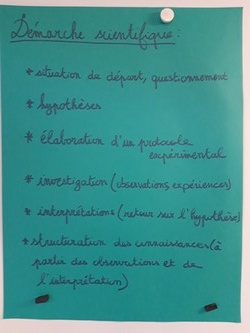 Démarche scientifique :
* situation de départ, questionnement
* hypothèses
* élaboration d'un protocole
expérimental
* investigation (observations, expériences)
* interprétations (retour sur l'hypothèse)
* structuration des connaissances (à
partir des observations et de
l'interprétation)